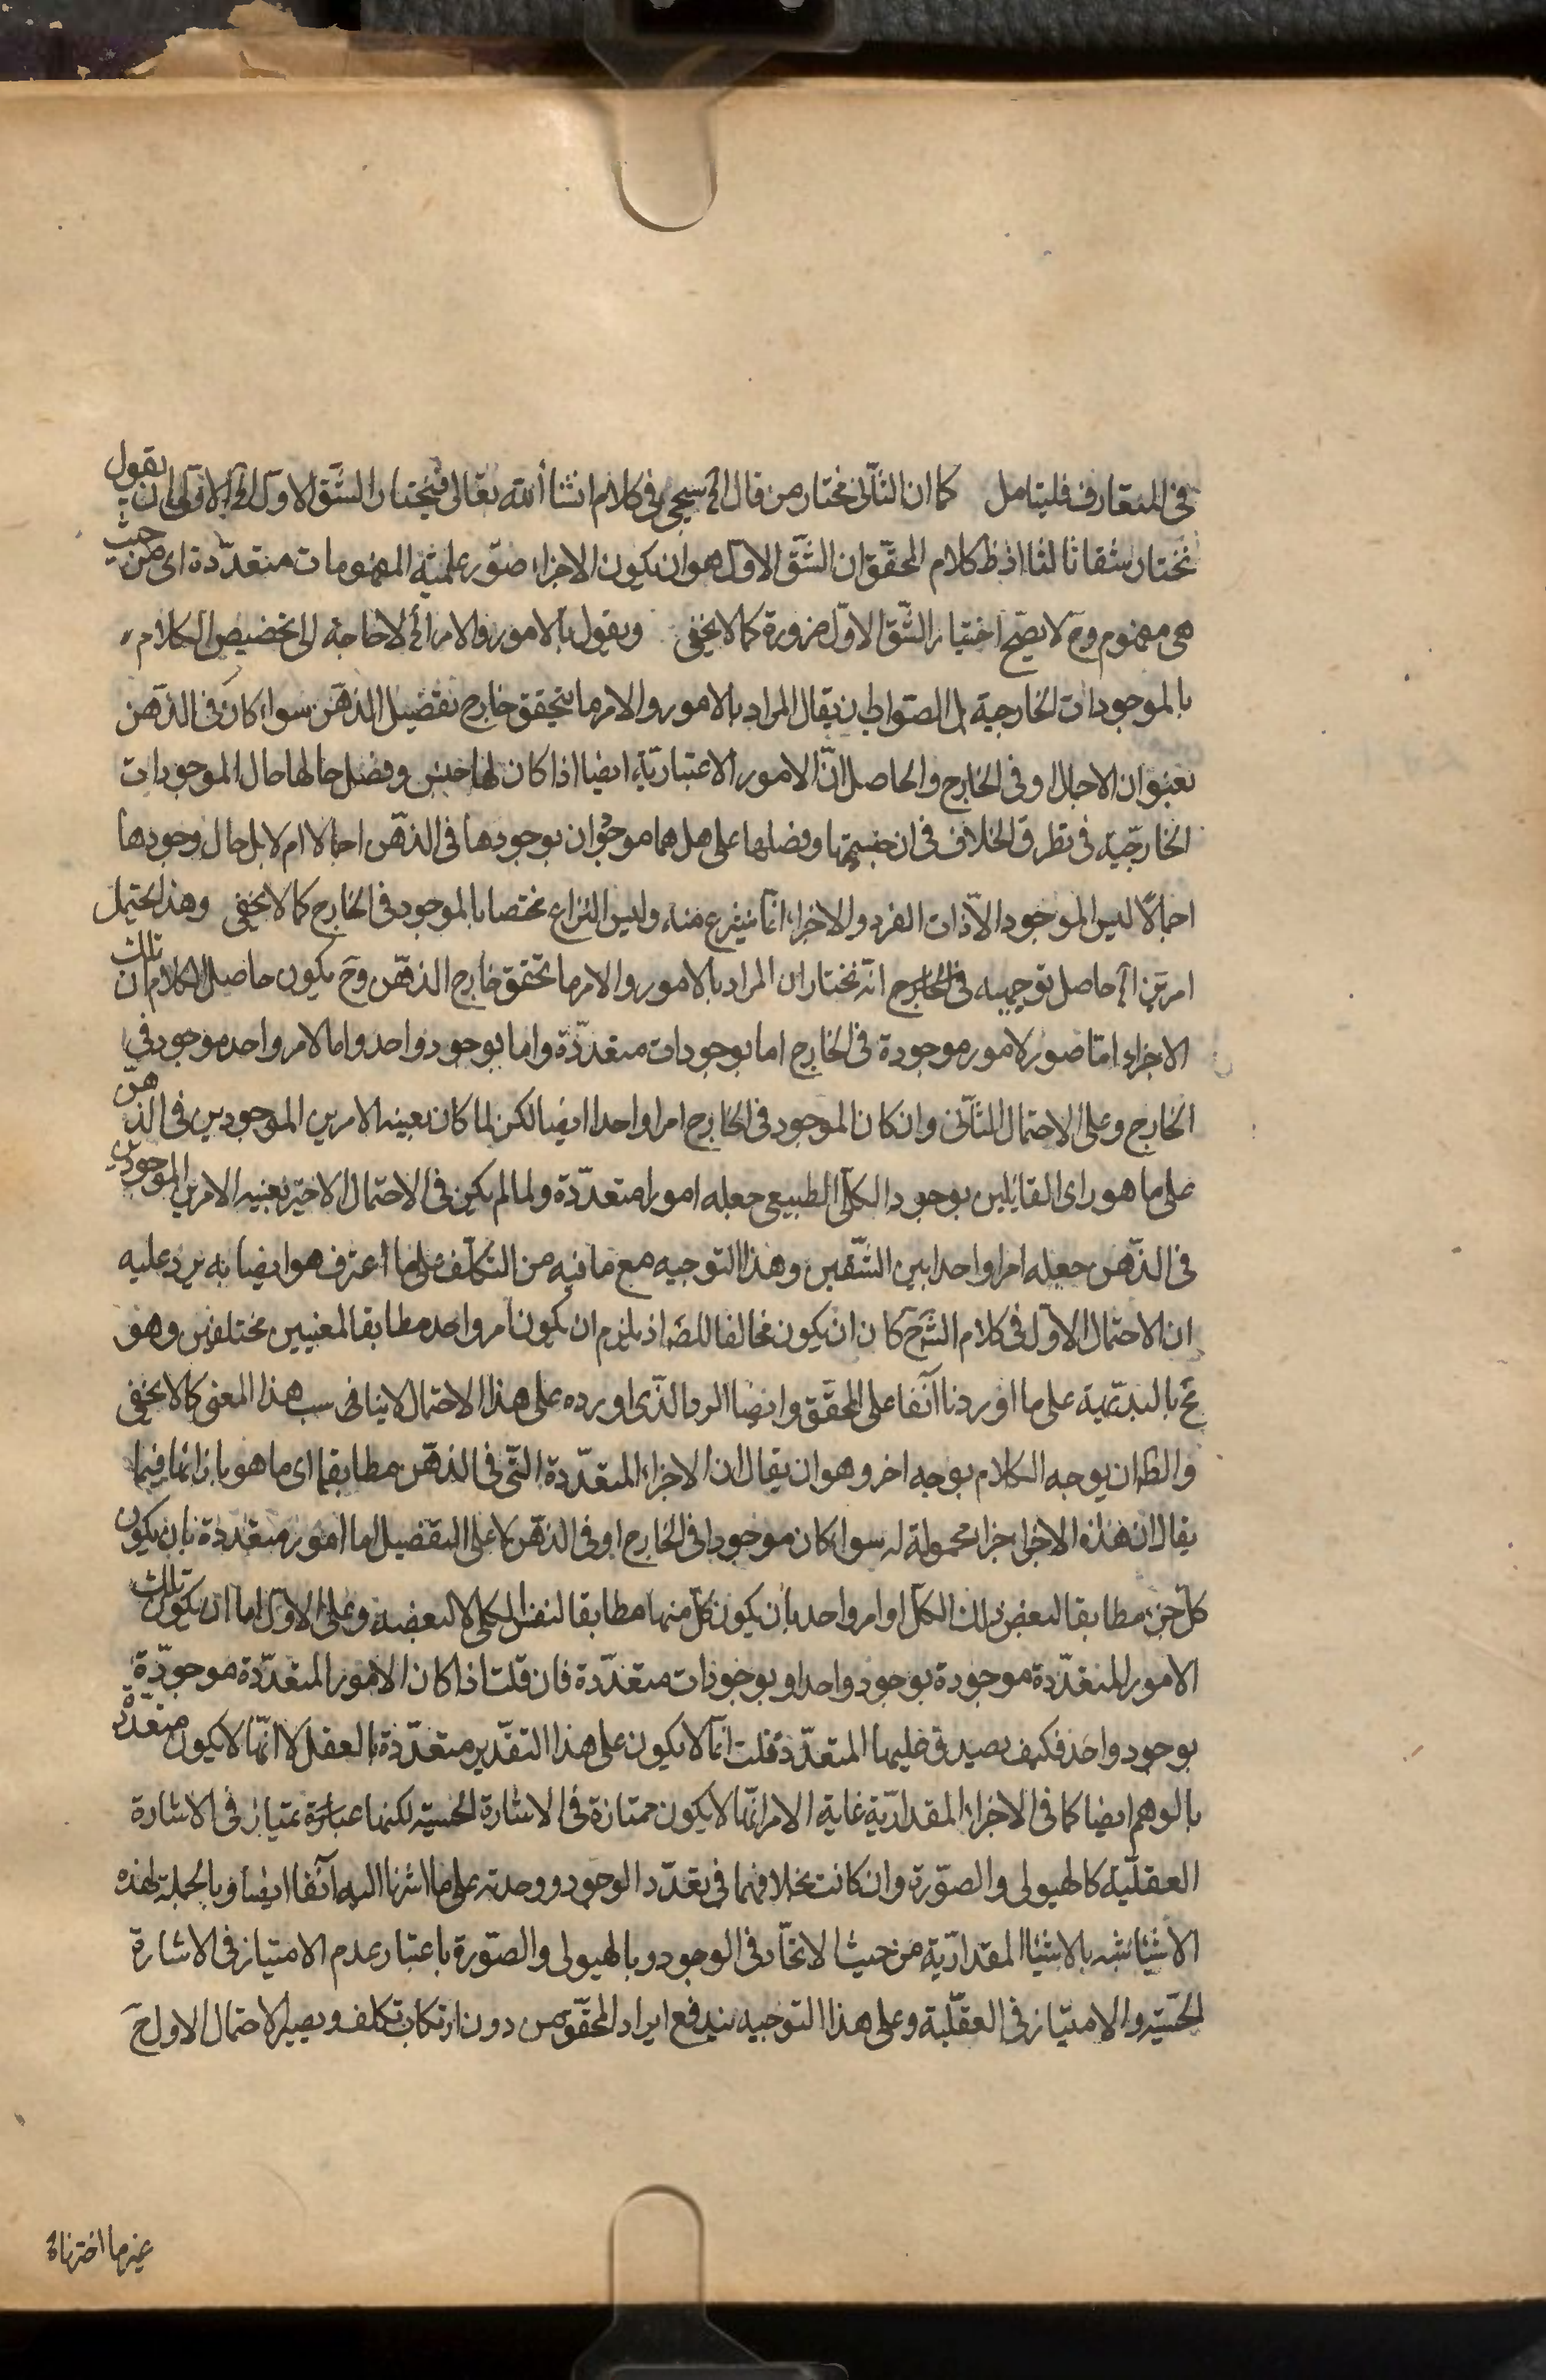 في المتعارف فليتامل كما ان الثاني مختار من قال الخ سيجئ في كلام انشا الله تعالى فيختار الشق الاول الخ الاولى ان يقول
نختار شقا ثالثا اذ ظ كلام المحقق ان الشق الاول هو ان يكون الاجزاء صور علمية المفهومات متعددة اى من حيث
هى مفهوم وح لا يصح اختيار الشق الاول ضرورة كما لا يخفى ويقول بالامور والامر الخ لا حاجة الى تخصيص الكلام
بالموجودات الخارجية بل الصواب ان يقال المراد بالامور والامر ما يتحقق خارج تفصيل الذهن سواء كان في الذهن
بعنوان الاجمال او في الخارج والحاصل ان الامور الاعتبارية ايضا اذا كان لها جنس وفصل حالها حال الموجودات
الخارجية في تطرق الخلاف في ان جنسها وفصلها على هل هما موجودان بوجودها في الذهن اجمالا ام لا بل حال وجودها
اجمالا ليس الموجود الا ذات الفرد والاجزاء انما ينتزع منه وليس النزاع مختصا بالموجود في الخارج كما لا يخفى وهذا يحتمل
امرين الخ حاصل توجيهه في الخارج انه نختار ان المراد بالامور والامر ما تحقق خارج الذهن وح يكون حاصل الكلام ان تلك
الاجزاء اما صور لامور موجودة في الخارج اما بوجودات متعددة واما بوجود واحد واما لامر واحد موجود في
الخارج وعلى الاحتمال الثانى وان كان الموجود في الخارج امرا واحدا ايضا لكن لما كان بعينه الامرين الموجودين في الذهن
على ما هو راى القايلين بوجود الكلى الطبيعى جعله امورا متعددة ولما لم يكن في الاحتمال الاخير بعينه الامرين الموجودين
في الذهن جعله امرا واحدا بين الشقين وهذا التوجيه مع ما فيه من التكلف على ما اعترف هو ايضا به يرد عليه
ان الاحتمال الاول في كلام الشرح كان ان يكون مخالفا للضر اذ يلزم ان يكون امر واحد مطابقا لمعنيين مختلفين وهو
مح بالبديهية على ما اوردنا آنفا على المحقق وايضا الرد الذى اورده على هذا الاحتمال لا يناسب هذا المعنى كما لا يخفى
والظ ان يوجه الكلام بوجه اخر وهو ان يقال ان الاجزاء المتعددة التى في الذهن مطابقها اى ما هو بازائها فيما
يقال ان هذه الاجزاء اجزاء محمولة له سواء كان موجودا في الخارج او في الذهن لا على التفصيل اما امور متعددة بان يكون
كل جزء مطابقا لبعض ذلك الكل او امر واحد بان يكون كل منها مطابقا لنفس الكل لا لبعضه وعلى الاول اما ان يكون تلك
الامور المتعددة موجودة بوجود واحد او بوجودات متعددة فان قلت اذا كان الامور المتعددة موجودة
بوجود واحد فكيف يصدق عليها المتعددة قلت انما لا يكون على هذا التقدير متعددة بالعقل لا انها لا يكون متعددة
بالوهم ايضا كما في الاجزاء المقدارية غاية الامر انها لا يكون ممتازة في الاشارة الحسية لكنها عبارة يمتياز في الاشارة
العقلية كالهيولى والصورة وان كانت بخلافهما في تعدد الوجود ووحدته على ما اشرنا اليه آنفا ايضا وبالجملة لهذه
الاشياء شبه بالاشيا المقدارية من حيث الاتحاد في الوجود وبالهيولى والصورة باعتبار عدم الامتياز في الاشارة
الحسية والامتياز في العقلية وعلى هذا التوجيه يندفع ايراد المحقق من دون ارتكاب تكلف ويصير الاحتمال الاول ح
غير ما اخترناه